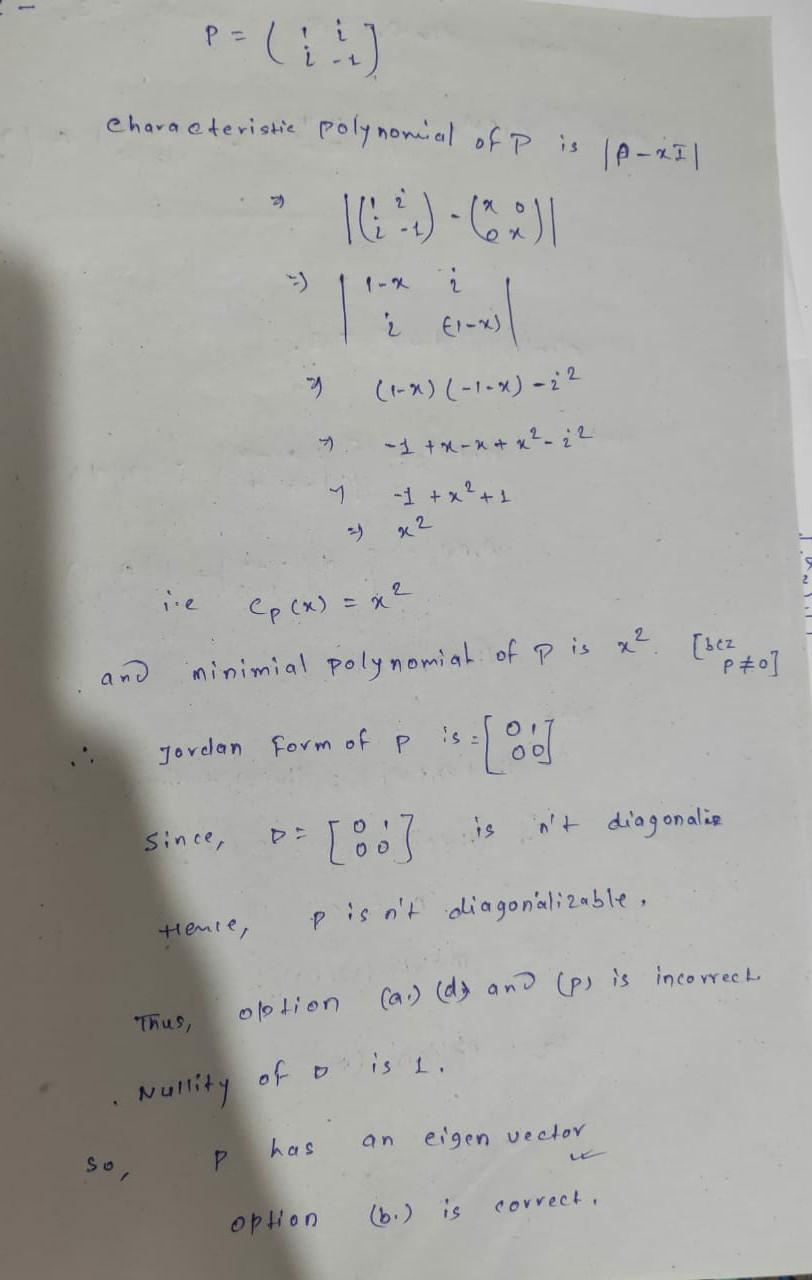 P = ( 1 i
i -1 )
Characteristic polynomial of P is |P-xI|
⇒ |( 1 i
i -1 ) - ( x 0
0 x )|
⇒ | 1-x i
i (-1-x) |
⇒ (1-x) (-1-x) - i²
⇒ -1 + x - x + x² - i²
⇒ -1 + x² + 1
⇒ x²
i.e Cp(x) = x²
and minimial polynomial of P is x². [bcz P≠0]
∴ Jordan form of P is = [ 0 1
0 0 ]
Since, D = [ 0 1
0 0 ] is n't diagonalize
Hence, P is n't diagonalizable.
Thus, option (a.) (d) and (p) is incorrect
. Nullity of D is 1.
So, P has an eigen vector
option (b.) is correct.